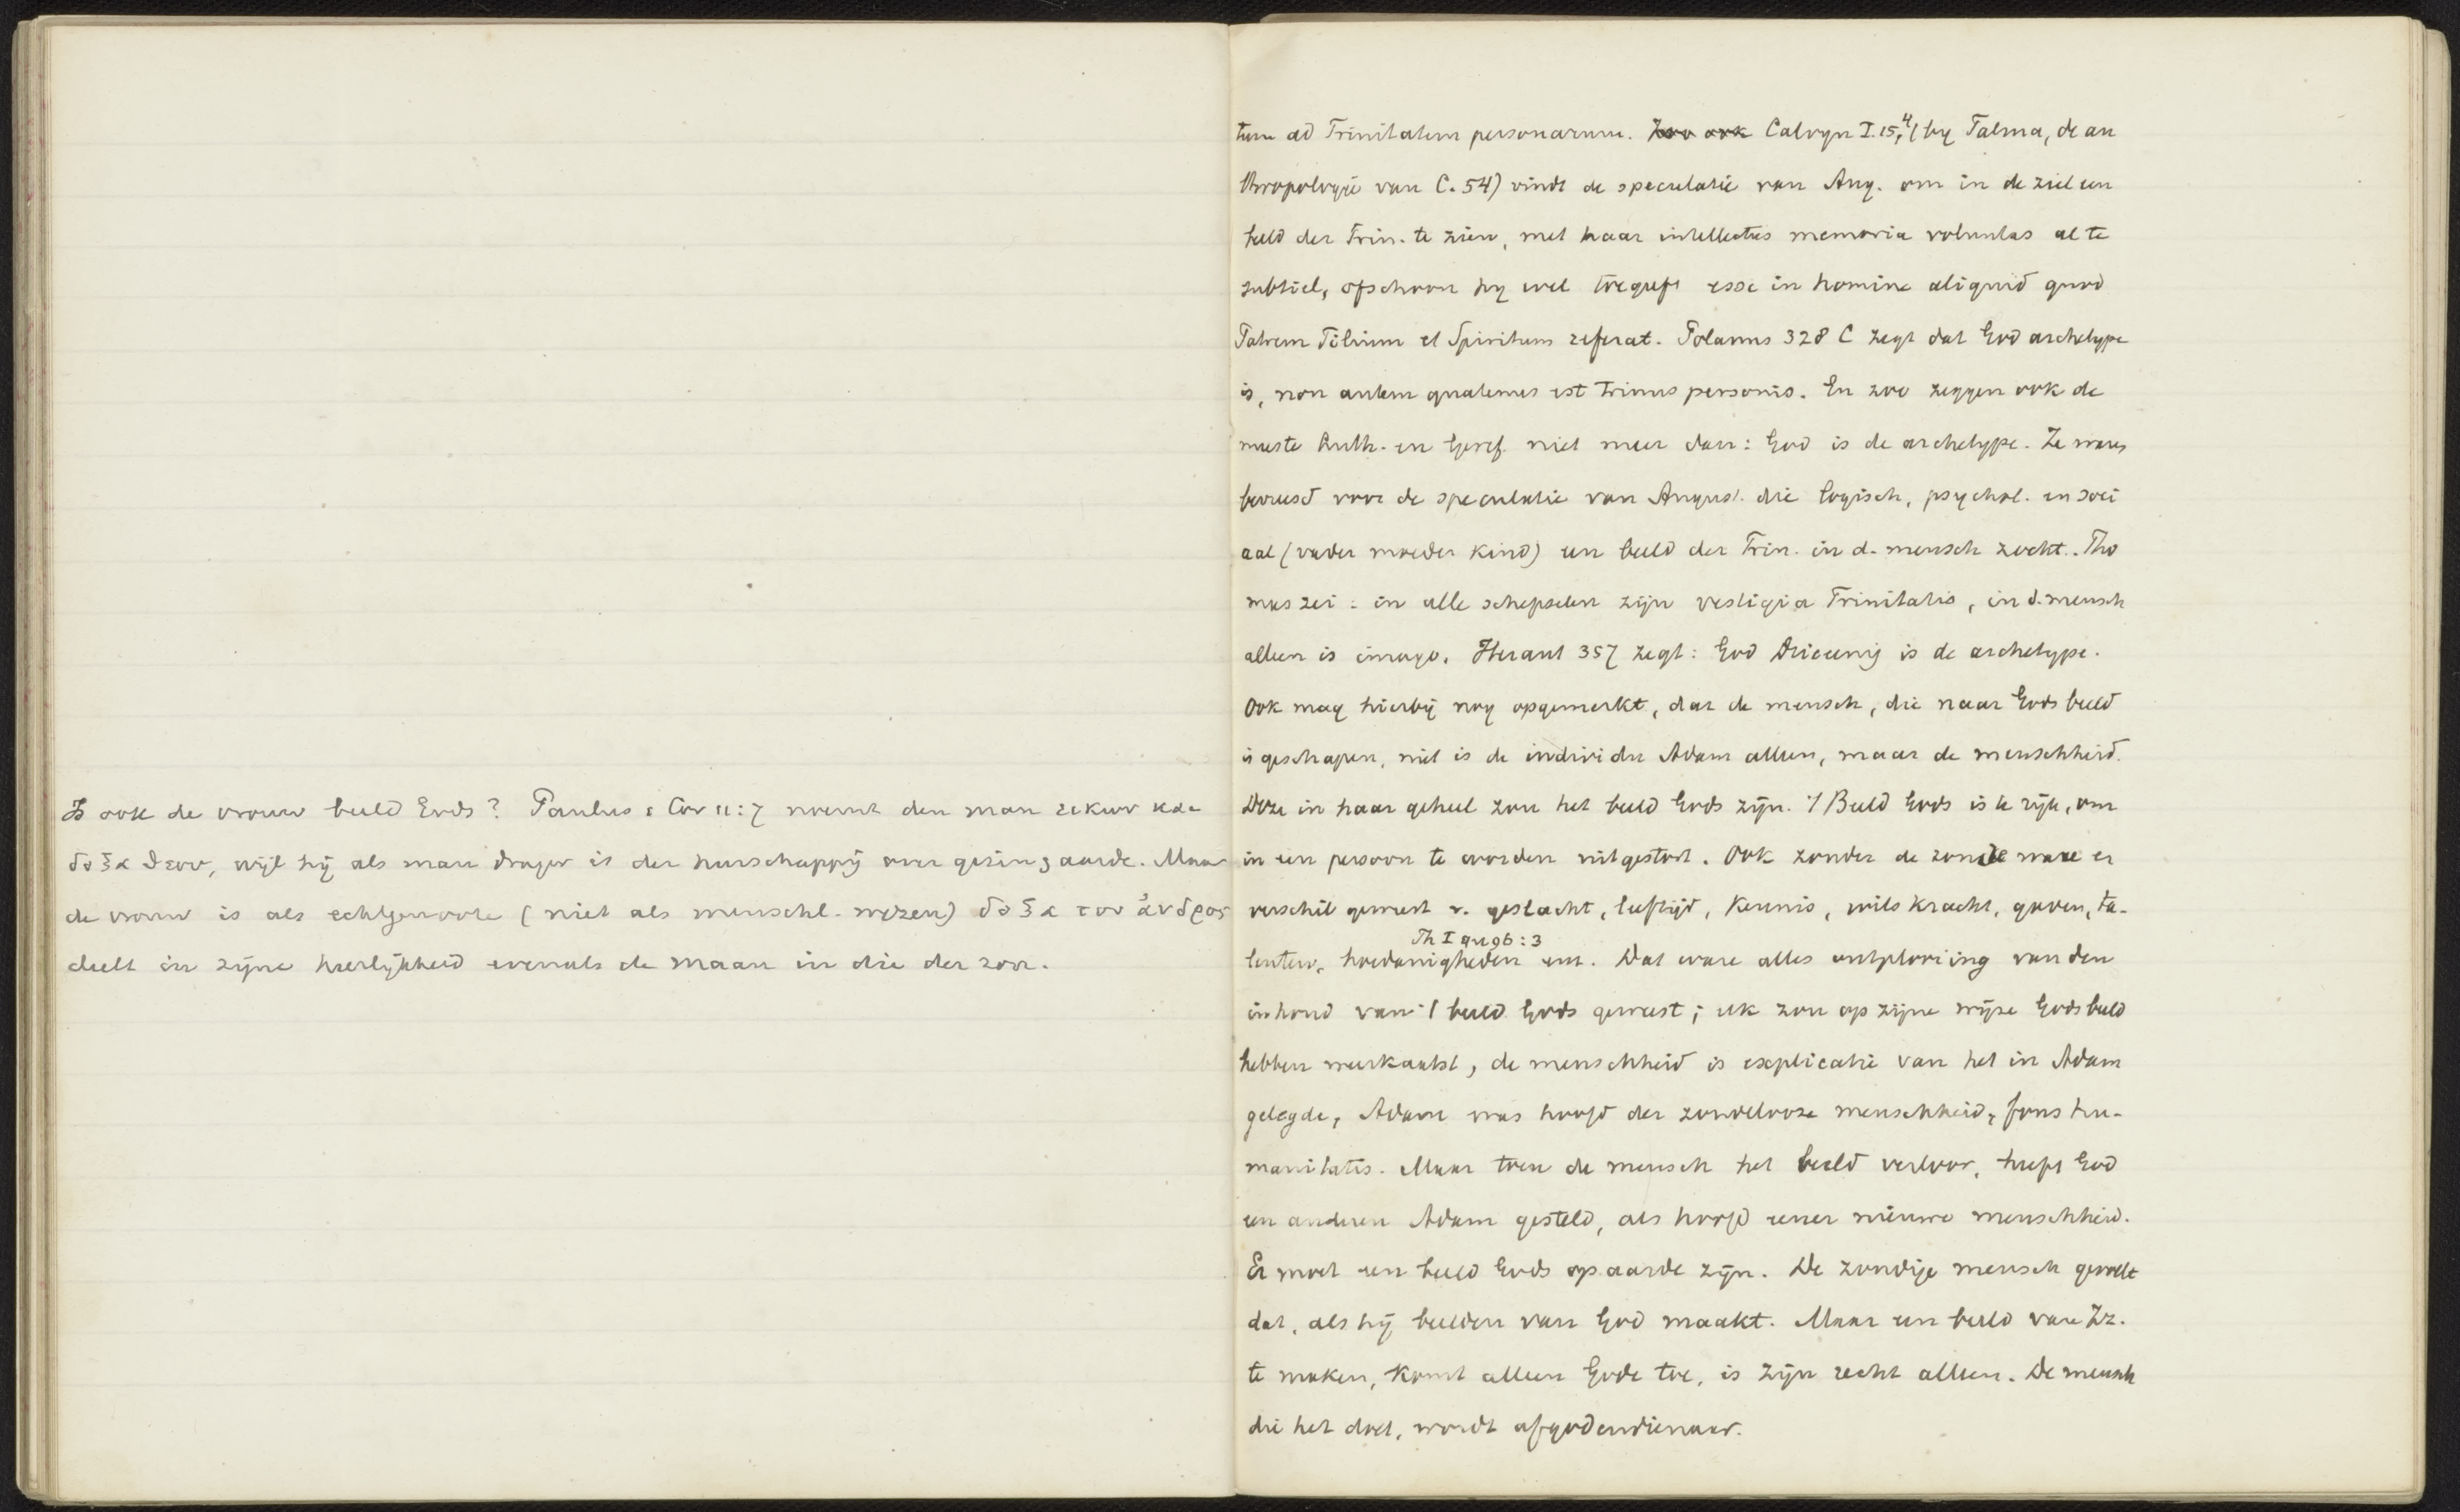 Is ook de vrouw beeld Gods? Paulus 1 Cor 11:7 noemt den man εικων και
δοξα θεου, wijl hij als man drager is der heerschappij over gezin & aarde. Maar
de vrouw is als echtgenoote (niet als menschl. wezen) δοξα του ἀνδρος
deelt in zijne heerlijkheid evenals de maan in die der zon.
tum ad Trinitatem personarum. Zoo ook Calvyn I.15,4 (by Talma, de an
thropologie van C. 54) vindt de speculatie van Aug. om in de ziel een
beeld der Trin. te zien, met haar intellectus memoria voluntas al te
subtiel, ofschoon hy wel toegeeft esse in homine aliquid quod
Patrem Filium et Spiritum referat. Polanus 328 C zegt dat God archetype
is, non autem quatenus est trinus personis. En zoo zeggen ook de
meeste Luth. en Geref. niet meer dan: God is de archetype. Ze waren
bevreesd voor de speculatie van August. die logisch, psychol. en soci
aal (vader moeder kind) een beeld der Trin. in d. mensch zocht. Tho
mas zei: in alle schepselen zijn vestigia Trinitatis, in d. mensch
alleen is imago. Heraut 357 zegt: God Drieeenig is de archetype.
Ook mag hierbij nog opgemerkt, dat de mensch, die naar Gods beeld
is geschapen, niet is de individu Adam alleen, maar de menschheid.
Deze in haar geheel zou het beeld Gods zijn. 't Beeld Gods is te rijk, om
in een persoon te worden uitgestort. Ook zonder de zonde ware er
verschil geweest v. geslacht, leeftijd, kennis, wilskracht, gaven, ta-
Th I qu 96:3
lenten, hoedanigheden enz. Dat ware alles ontplooiing van den
inhoud van 't beeld Gods geweest; elk zou op zijne wijze Gods beeld
hebben weerkaatst, de menschheid is explicatie van het in Adam
gelegde, Adam was hoofd der zondelooze menschheid, fons hu-
manitatis. Maar toen de mensch het beeld verloor, heeft God
een anderen Adam gesteld, als hoofd eener nieuwe menschheid.
Er moet een beeld Gods op aarde zijn. De zondige mensch gevoelt
dat, als hij beelden van God maakt. Maar een beeld van Zz.
te maken, komt alleen Gode toe, is zijn recht alleen. De mensch
die het doet, wordt afgodendienaar.